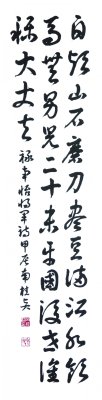 白頭山石磨刀盡豆滿江水飲
馬無男兒二十未平國後世誰
稱大丈夫 錄南怡將軍詩甲辰